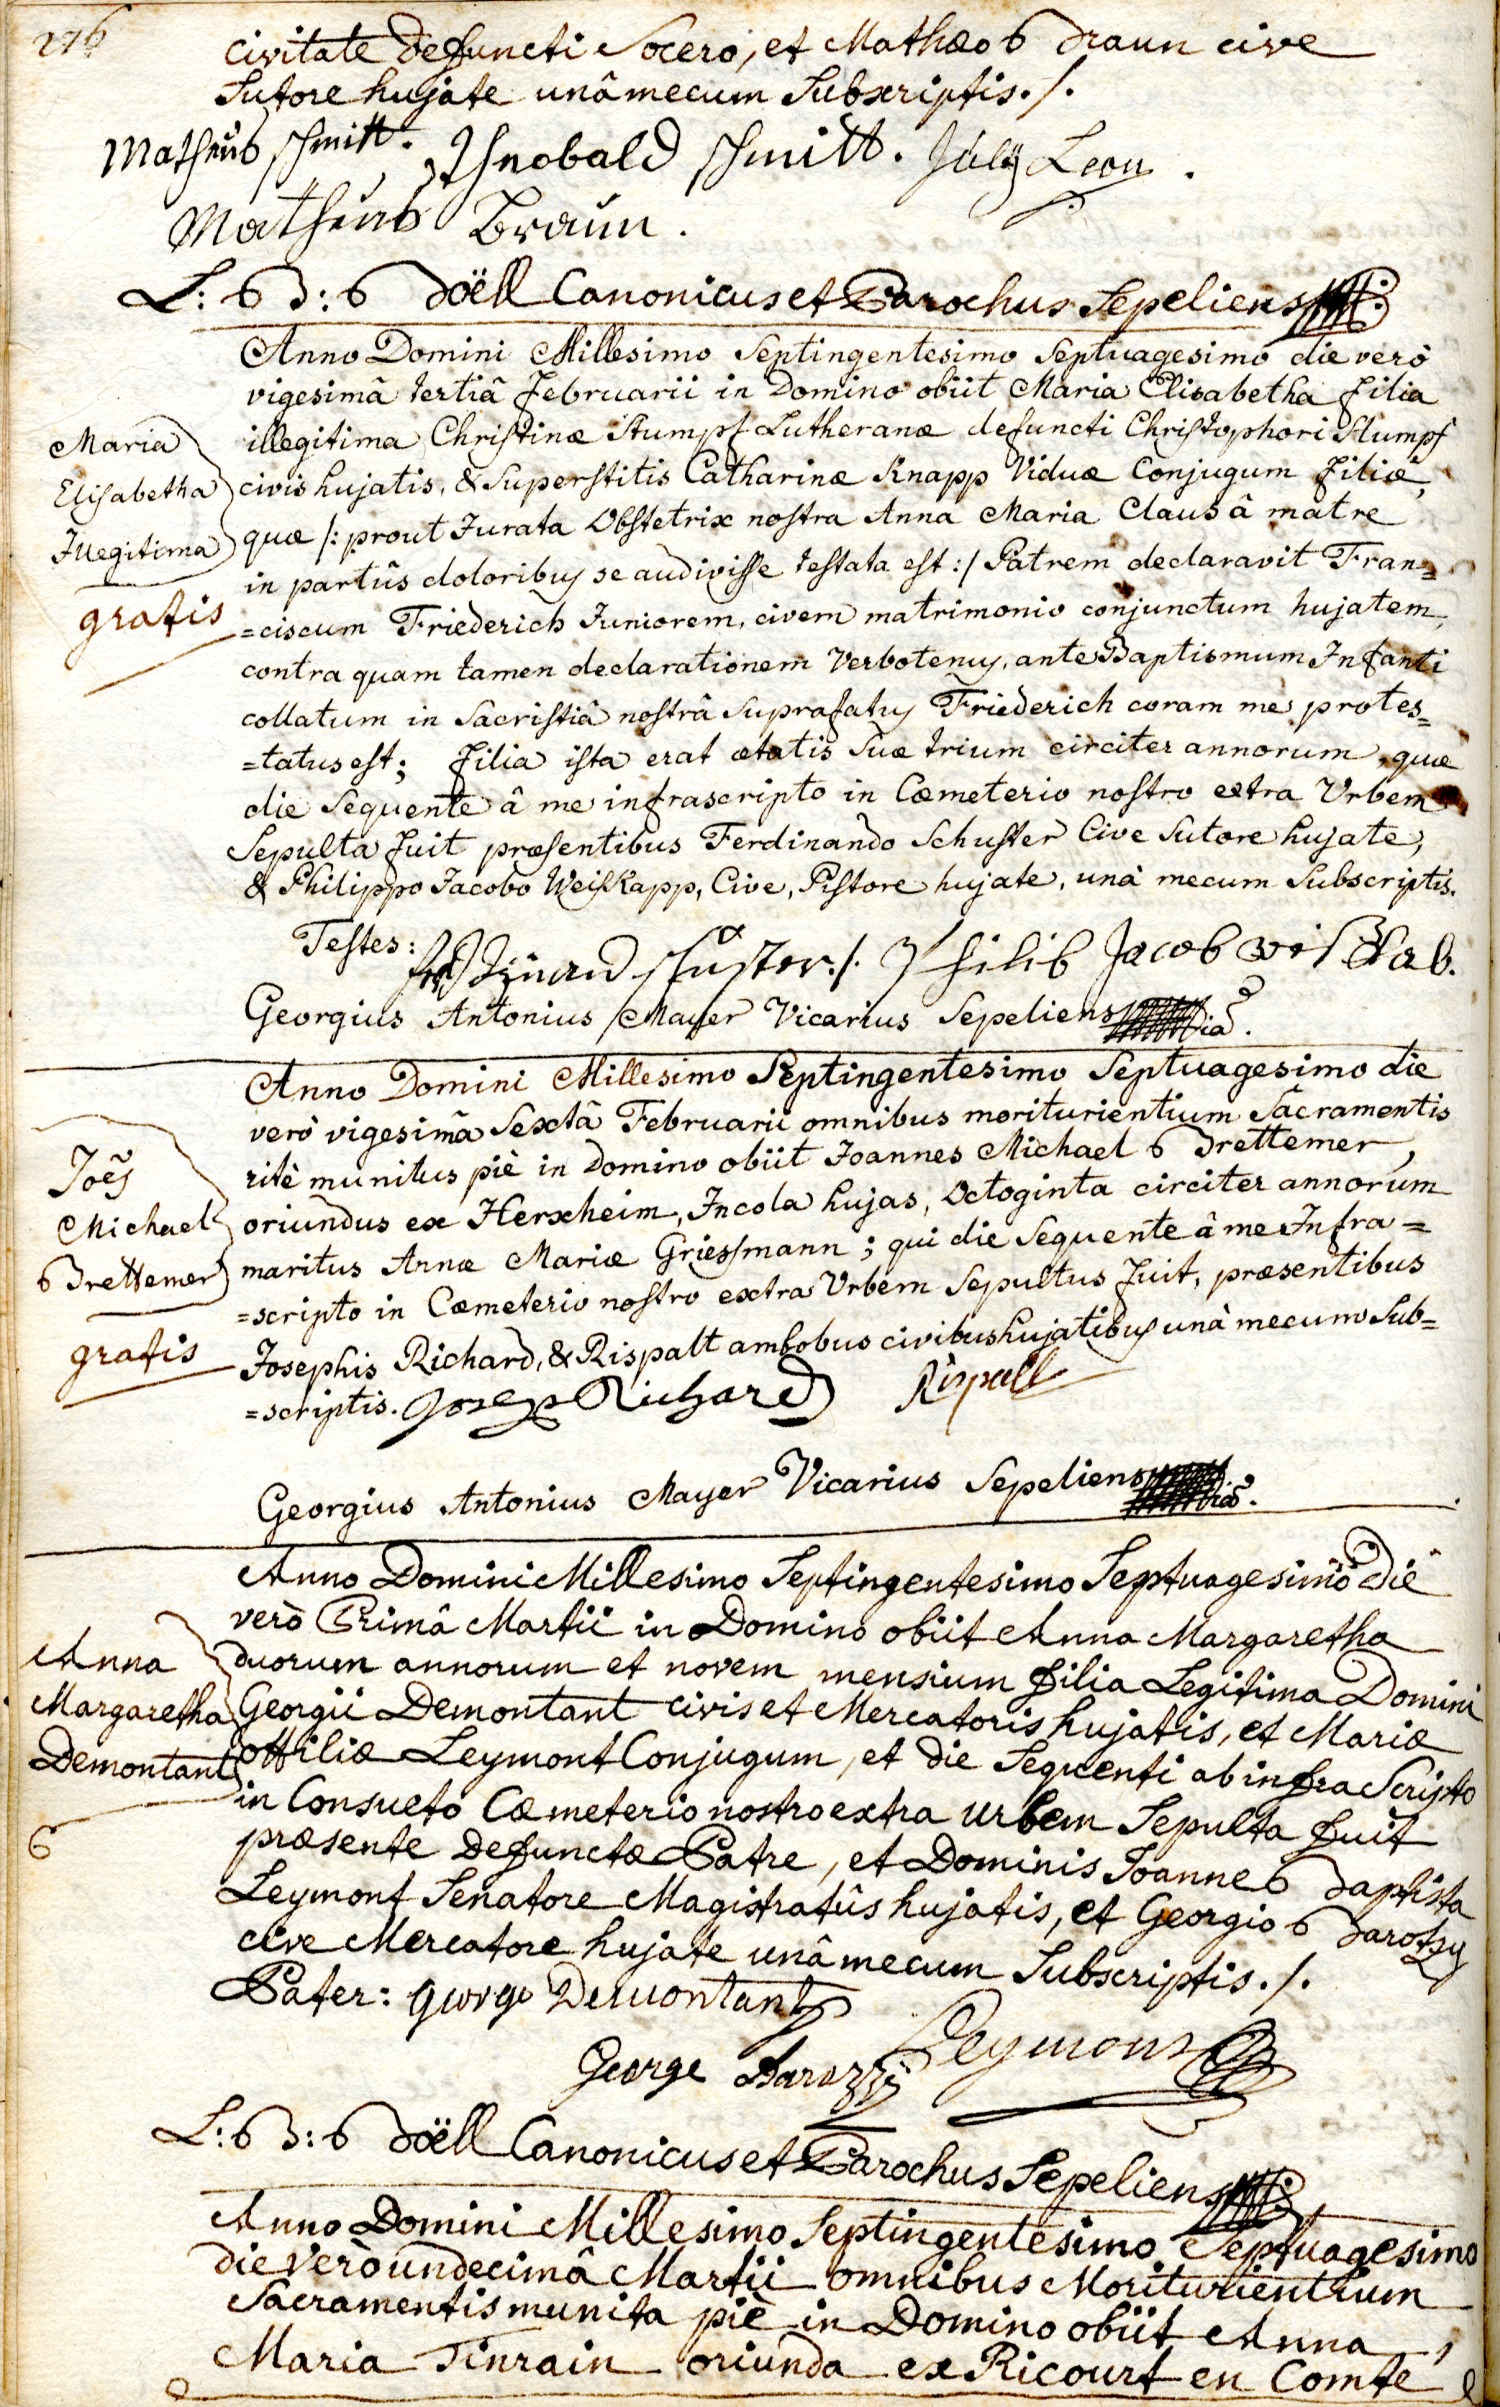 276
civitate defuncti Socero, et Mathæo Braun cive
Sutore hujate unâ mecum Subscriptis./.
Matheus schmitt. Thnobald schmitt. July Leon.
Matheus Braun.
L: B: Boëll Canonicus et Parochus Sepeliens
Anno Domini Millesimo Septingentesimo Septuagesimo die verò
vigesimâ tertiâ Februarii in Domino obiit Maria Elisabetha filia
illegitima Christinæ Stumpf Lutheranæ defuncti Christophori Stumpf
civis hujatis, & Superstitis Catharinæ Knapp Viduæ Conjugum filiæ,
quæ /: prout Jurata Obstetrix nostra Anna Maria Claus â matre
in partûs doloribus se audivisse testata est :/ Patrem declaravit Fran=
=ciscum Friederich Juniorem, civem matrimonio conjunctum hujatem,
contra quam tamen declarationem Verbotenus, ante Baptismum Infanti
collatum in Sacristiâ nostrâ Suprafatus Friederich coram me protes=
=tatus est; filia ista erat ætatis Suæ trium circiter annorum, quæ
die Sequente â me infrascripto in Cœmeterio nostro extra Urbem
Sepulta fuit præsentibus Ferdinando Schuster Cive Sutore hujate,
& Philippo Jacobo Weiskapp, Cive, Pistore hujate, unà mecum Subscriptis.
Maria
Elisabetha
Illegitima
gratis
Testes: ferdinand schuster./. Philib Jacob weiskab.
Georgius Antonius Mayer Vicarius Sepeliens
Anno Domini Millesimo Septingentesimo Septuagesimo die
verò vigesimâ Sextâ Februarii omnibus moriturientium Sacramentis
ritè munitus piè in Domino obiit Joannes Michael Brettemer,
oriundus ex Herxheim, Incola hujas, Octoginta circiter annorum
maritus Annæ Mariæ Griessmann; qui die Sequente â me Infra=
=scripto in Cœmeterio nostro extra Urbem Sepultus fuit, præsentibus
Josephis Richard, & Rispalt ambobus civibus hujatibus unà mecum Sub=
=scriptis. Joseph Richard Rispall
Joẽs
Michael
Brettemer
gratis
Georgius Antonius Mayer Vicarius Sepeliens
Anno Domini Millesimo Septingentesimo Septuagesimo Die
verò Primâ Martii in Domino obiit Anna Margaretha
duorum annorum et novem mensium filia Legitima Domini
Georgii Demontant civis et Mercatoris hujatis, et Mariæ
ottiliæ Leymont Conjugum, et die Sequenti ab infra Scripto
in Consueto Cæmeterio nostro extra urbem Sepulta fuit
præsente defunctæ Patre, et Dominis Joanne Baptista
Leymont Senatore Magistratûs hujatis, et Georgio Barotzy
cive Mercatore hujate unâ mecum Subscriptis./.
Anna
Margaretha
Demontant
Pater: George Demontant
George Barozzy Leymont
L: B: Boëll Canonicus et Parochus Sepeliens
Anno Domini Millesimo Septingentesimo Septuagesimo
die Verò undecimâ Martii omnibus Moriturientium
Sacramentis munita piè in Domino obiit Anna
Maria Tinrain oriunda ex Ricourt en Comte